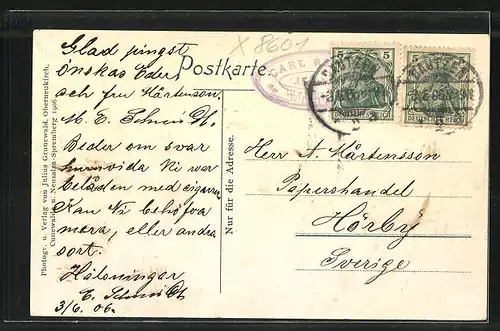 Glad pingst
önskas Eder
och fru Mårtenson.
M. E. Schmidt.
Beder om svar
huruvida Ni var
belåten med cigarrerna
Kan Ni behöfva
mera, eller andra
sort.
Hälsningar
E. Schmidt
3/6. 06.
Postkarte
X 8601
CARL
5 5
DEUTSCHES REICH DEUTSCHES REICH
Herr A. Mårtensson
Pappershandel
Hörby
Sverige
Nur für die Adresse.
Photogr. u. Verlag von Julius Grunewald, Oberneukirch,
Cunewalde u. Neusalza-Spremberg 1906.